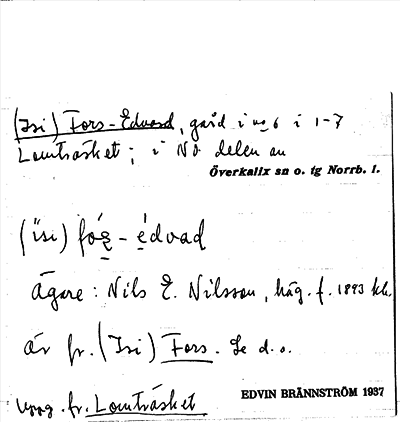 (Isi) Fors-Edvard, gård i no 6 i 1-7
Lomträsket; i NÖ delen av
Överkalix sn o. tg Norrb. l.
(īsi) fóş-édvad
Ägare: Nils E. Nilsson, häg. f. 1893 kh.
är fr. (Isi) Fors. Se d. o.
Uppg. fr. Lomträsket
EDVIN BRÄNNSTRÖM 1937